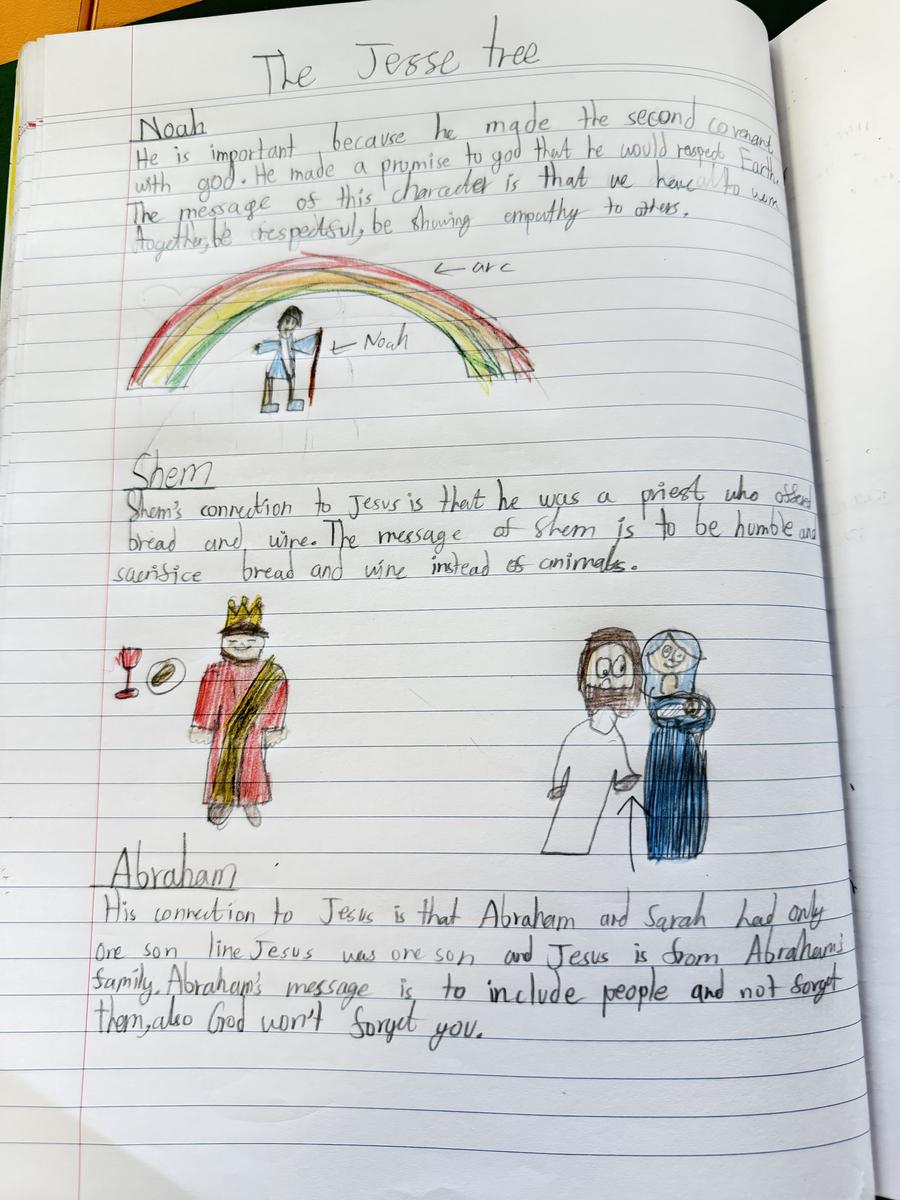 The Jesse tree
Noah
He is important because he made the second covenant
with god. He made a promise to god that he would respect Earth.
The message of this character is that we have to work
together, be respectful, be showing empathy to others.
← arc
← Noah
Shem
Shem's connection to Jesus is that he was a priest who offered
bread and wine. The message of Shem is to be humble and
sacrifice bread and wine instead of animals.
Abraham
His connection to Jesus is that Abraham and Sarah had only
one son line Jesus was one son and Jesus is from Abraham's
family. Abraham's message is to include people and not forget
them, also God won't forget you.